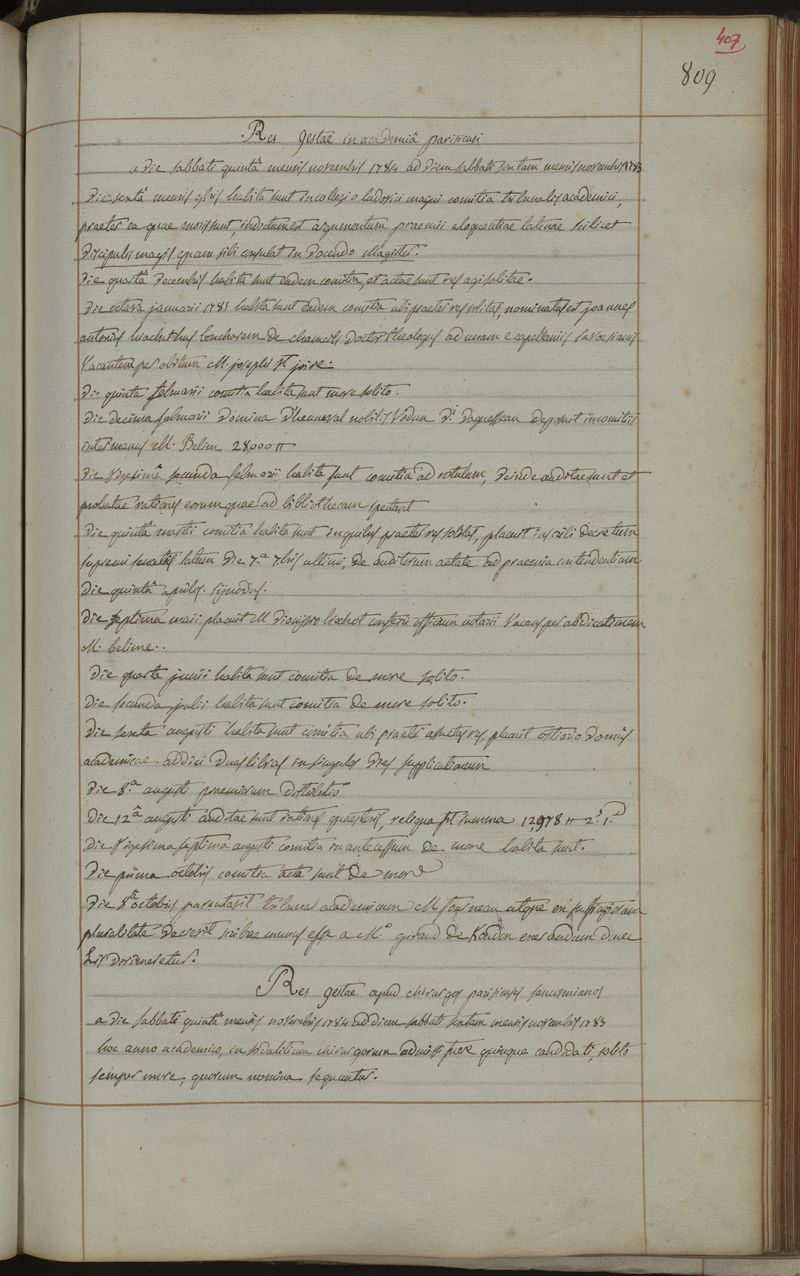 407
809
Res gestae in academiâ parisiensi
a die sabbati quintâ mensis novembris 1784 ad diem sabbati sextam mensis novembris 1785
Die sextâ mensis 9bris habita sunt in collegio ludovici magni comitia tribunalis academici,
praeter ea quae moris sunt, indictum est argumentum praemii eloquentiae latinae scilicet
discipulis magis quam sibi consulat in docendo Magister.
Die quartâ decembris habita sunt eadem comitia, et actae sunt res agi solitae.
Die octava januarii 1785 habita sunt eadem comitia ubi praeter res solitas, nominatus est joannes
antonius hiacinthus boucharem de chaumeils doctor theologus ad unam e capellaniis savoesianis
vacantem per obitum M. josephi
Die quinta februarii comitia habita sunt more solito.
Die decima februarii Domina D'henneval nobilis vidua Di. daguesseau deposuit in comitiis
inter manus M. Belin 28000 tt
Die vigesimâ secunda februarii habita sunt comitia ad rotulum, deinde auditae sunt et
probatae rationes eorum quae ad bibliothecam spectant
Die quintâ martii comitia habita sunt in quibus praeter res solitas, placuit decretum
supremi senatus latum die 7.a 7bris ultimi, de auditorum aetate ad praemia contendentium
Die quintâ aprilis. synodus.
Die septima maii placuit M dionysio brochot conferri officium notarii vacans per abdicationem
M. beline..
Die quarta junii habita sunt comitia de more solito.
Die secunda julii habita sunt comitia de more solito.
Die sexta augusti habita sunt comitia ubi praeter res, placuit ostiario domus
academicae addici duas libras in singulos dies supplicationum
Die 8.a augusti praemiorum distributio
Die 12.a augusti auditae sunt rationes quaestoris, reliqua fit summa 12,978 tt 2s 1d
Die vigesima septima augusti comitia in antecessum de more habita sunt.
Die prima octobris comitia acta sunt de more
Die 8a octobris parentavit tribunal academicum M fourneau atque en suffragiorum
pluralitate decrevit scribae munus esse a Mo. giraud de Koudou exercendum donec
Lis dirimeretur.
Res gestae apud chirurgos parisienses sancosmianos
a die sabbati quintâ mensis novembris 1784 ad diem sabbati sextam mensis novembris 1785
hoc anno academico, in sodalitium chirurgorum admissi fuere quinque candidati, solito
semper more, quorum nomina sequuntur.